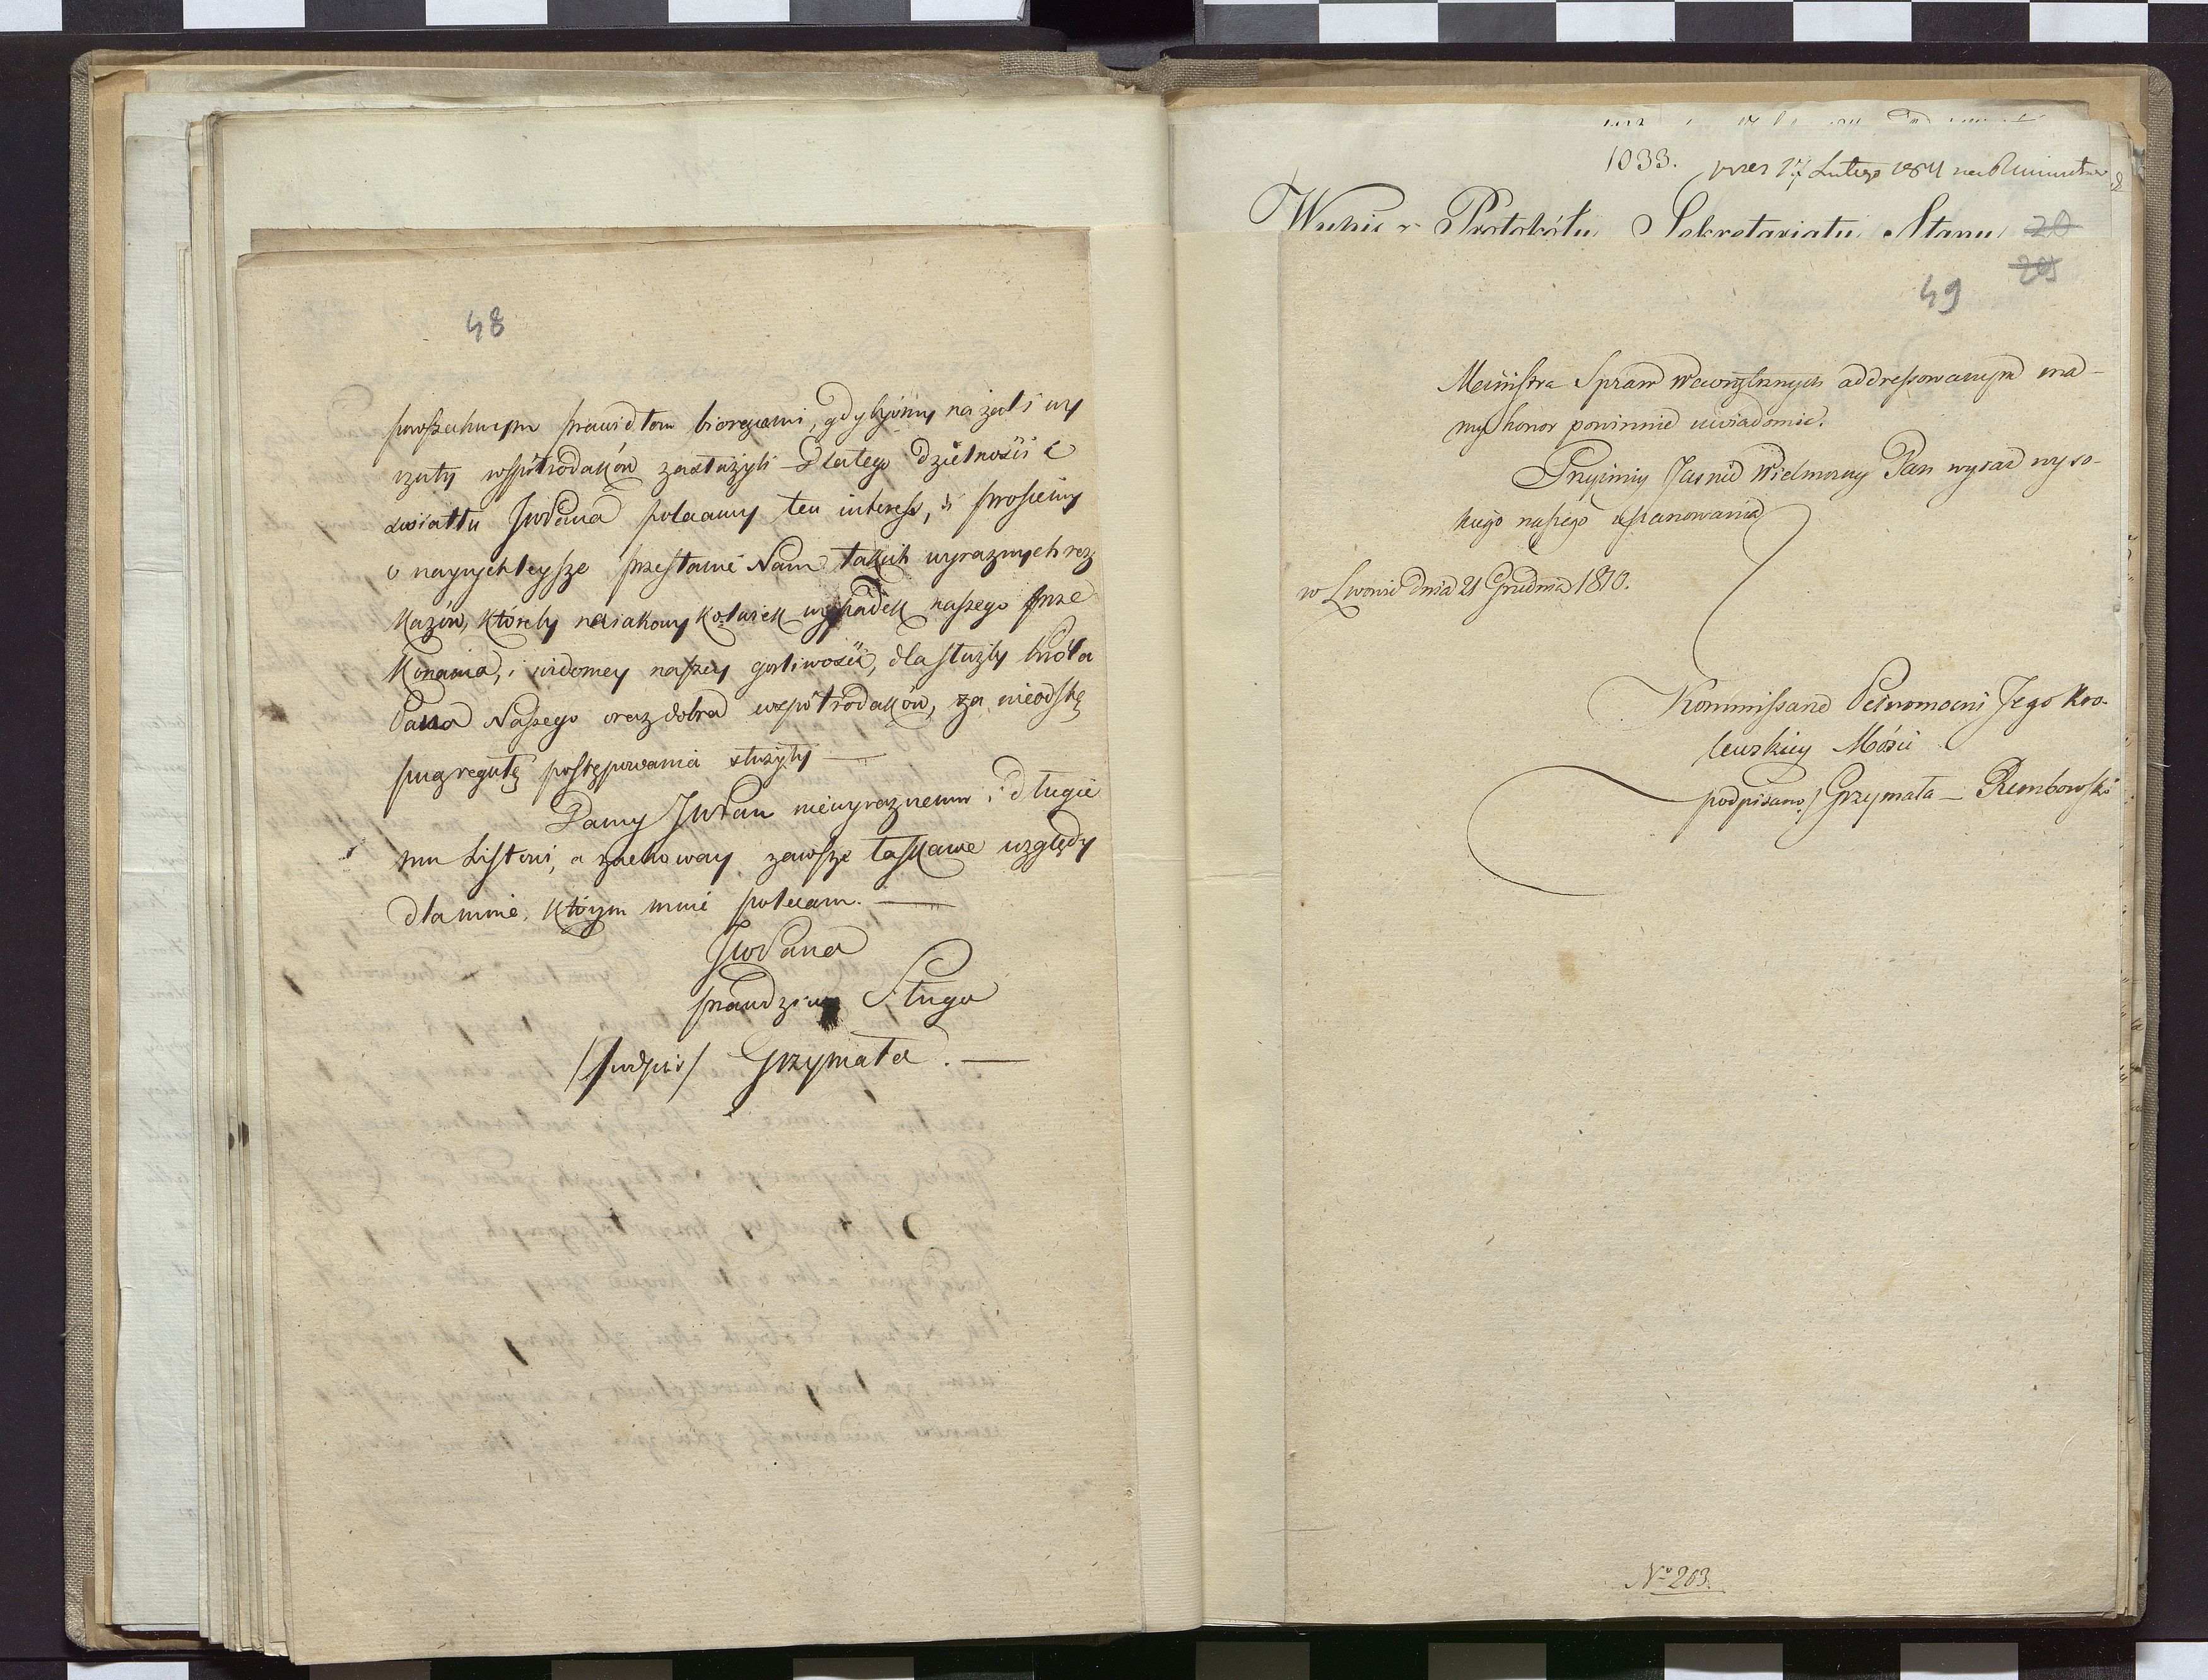 48
powszechnym prawidłom biorącemi, gdybyśmy na żal i wy
rzuty współrodaków zasłużyli – Dlatego dzielności i
światłu JWPana polecamy ten interess, i prosiemy
o nayrychleysze przesłanie Nam takich wyraznych roz
kazów, któreby na iakowy kolwiek wypadek naszego prze
konania, i widomey naszey gorliwości, dla służby Króla
Pana Naszego oraz dobra współrodaków, za nieodstę
pną regułę postępowania służyły —
Daruy JWPan niewyraznemu i długie
mu Listowi, a zachoway zawsze łaskawe względy
dla mnie, którym mnie polecam. —
JWPana
prawdziwy Sługa
/podpis/ Grzymała. —
1033.
Lutego
Protokółu Sekretariatu Stanu
20
49
Ministra Spraw Wewnętrznych addressowanym ma-
my honor powinnie uwiadomić.
Przyimiy Jasnie Wielmozny Pan wyraz wyso-
kiego naszego uszanowania
w Lwowie dnia 21 Grudnia 1810.
Kommissarze Pełnomocni Jego Kro-
lewskiey Mości
podpisano/ Grzymała – Rembowski
No 203.